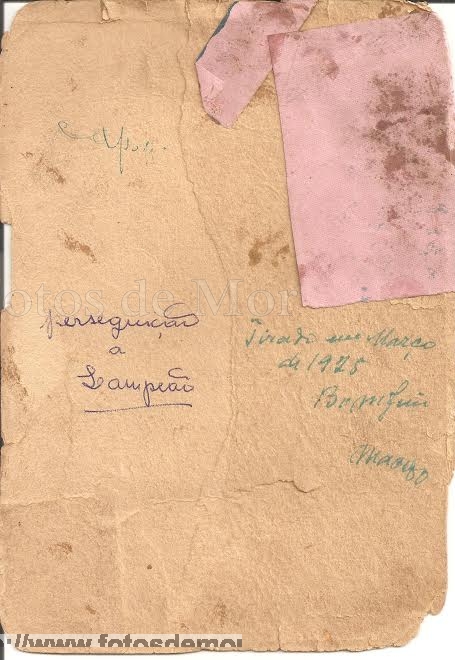 fotos de Mor
perseguição
a
Lampeão
Tirado em Março
de 1925
Bomfim
http://www.fotosdemor